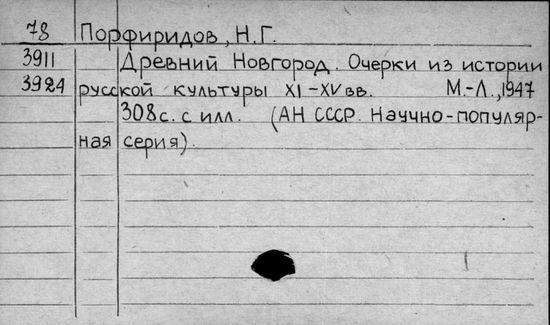 78 Порфиридов, Н.Г.
3911 Древний Новгород. Очерки из истории
3924 русской культуры XI-XV вв. М.-Л., 1947
308с. с илл. (АН СССР. Научно-популяр-
ная серия).